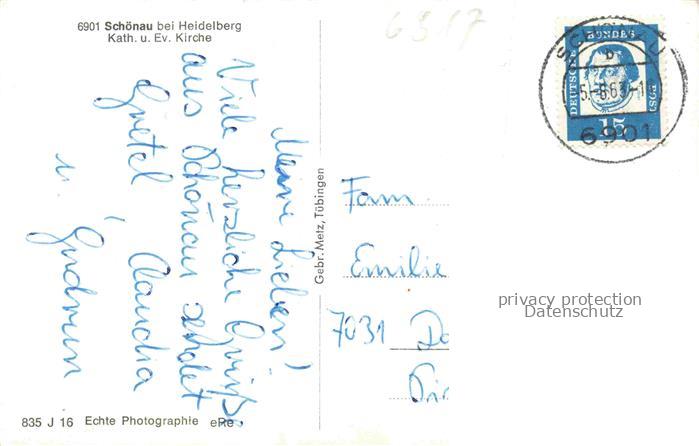 6901 Schönau bei Heidelberg
Kath. u. Ev. Kirche
6917
Meine Lieben!
Viele herzliche Grüße
aus Schönau sendet
Gretel, Claudia
u. Gudrun
Gebr. Metz, Tübingen
835 J 16 Echte Photographie
SCHÖNAU
b
-5.-8.63-1
6901
DEUTSCHE
BUNDES
POST
15
Fam.
Emilie
7031
privacy protection
Datenschutz